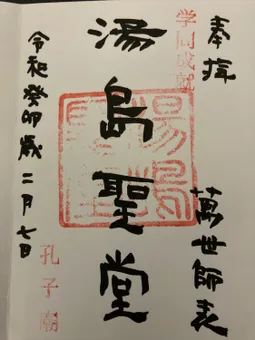 奉拜
萬世師表
学問成就
湯島聖堂
湯島聖堂
令和癸卯歳二月七日
孔子廟